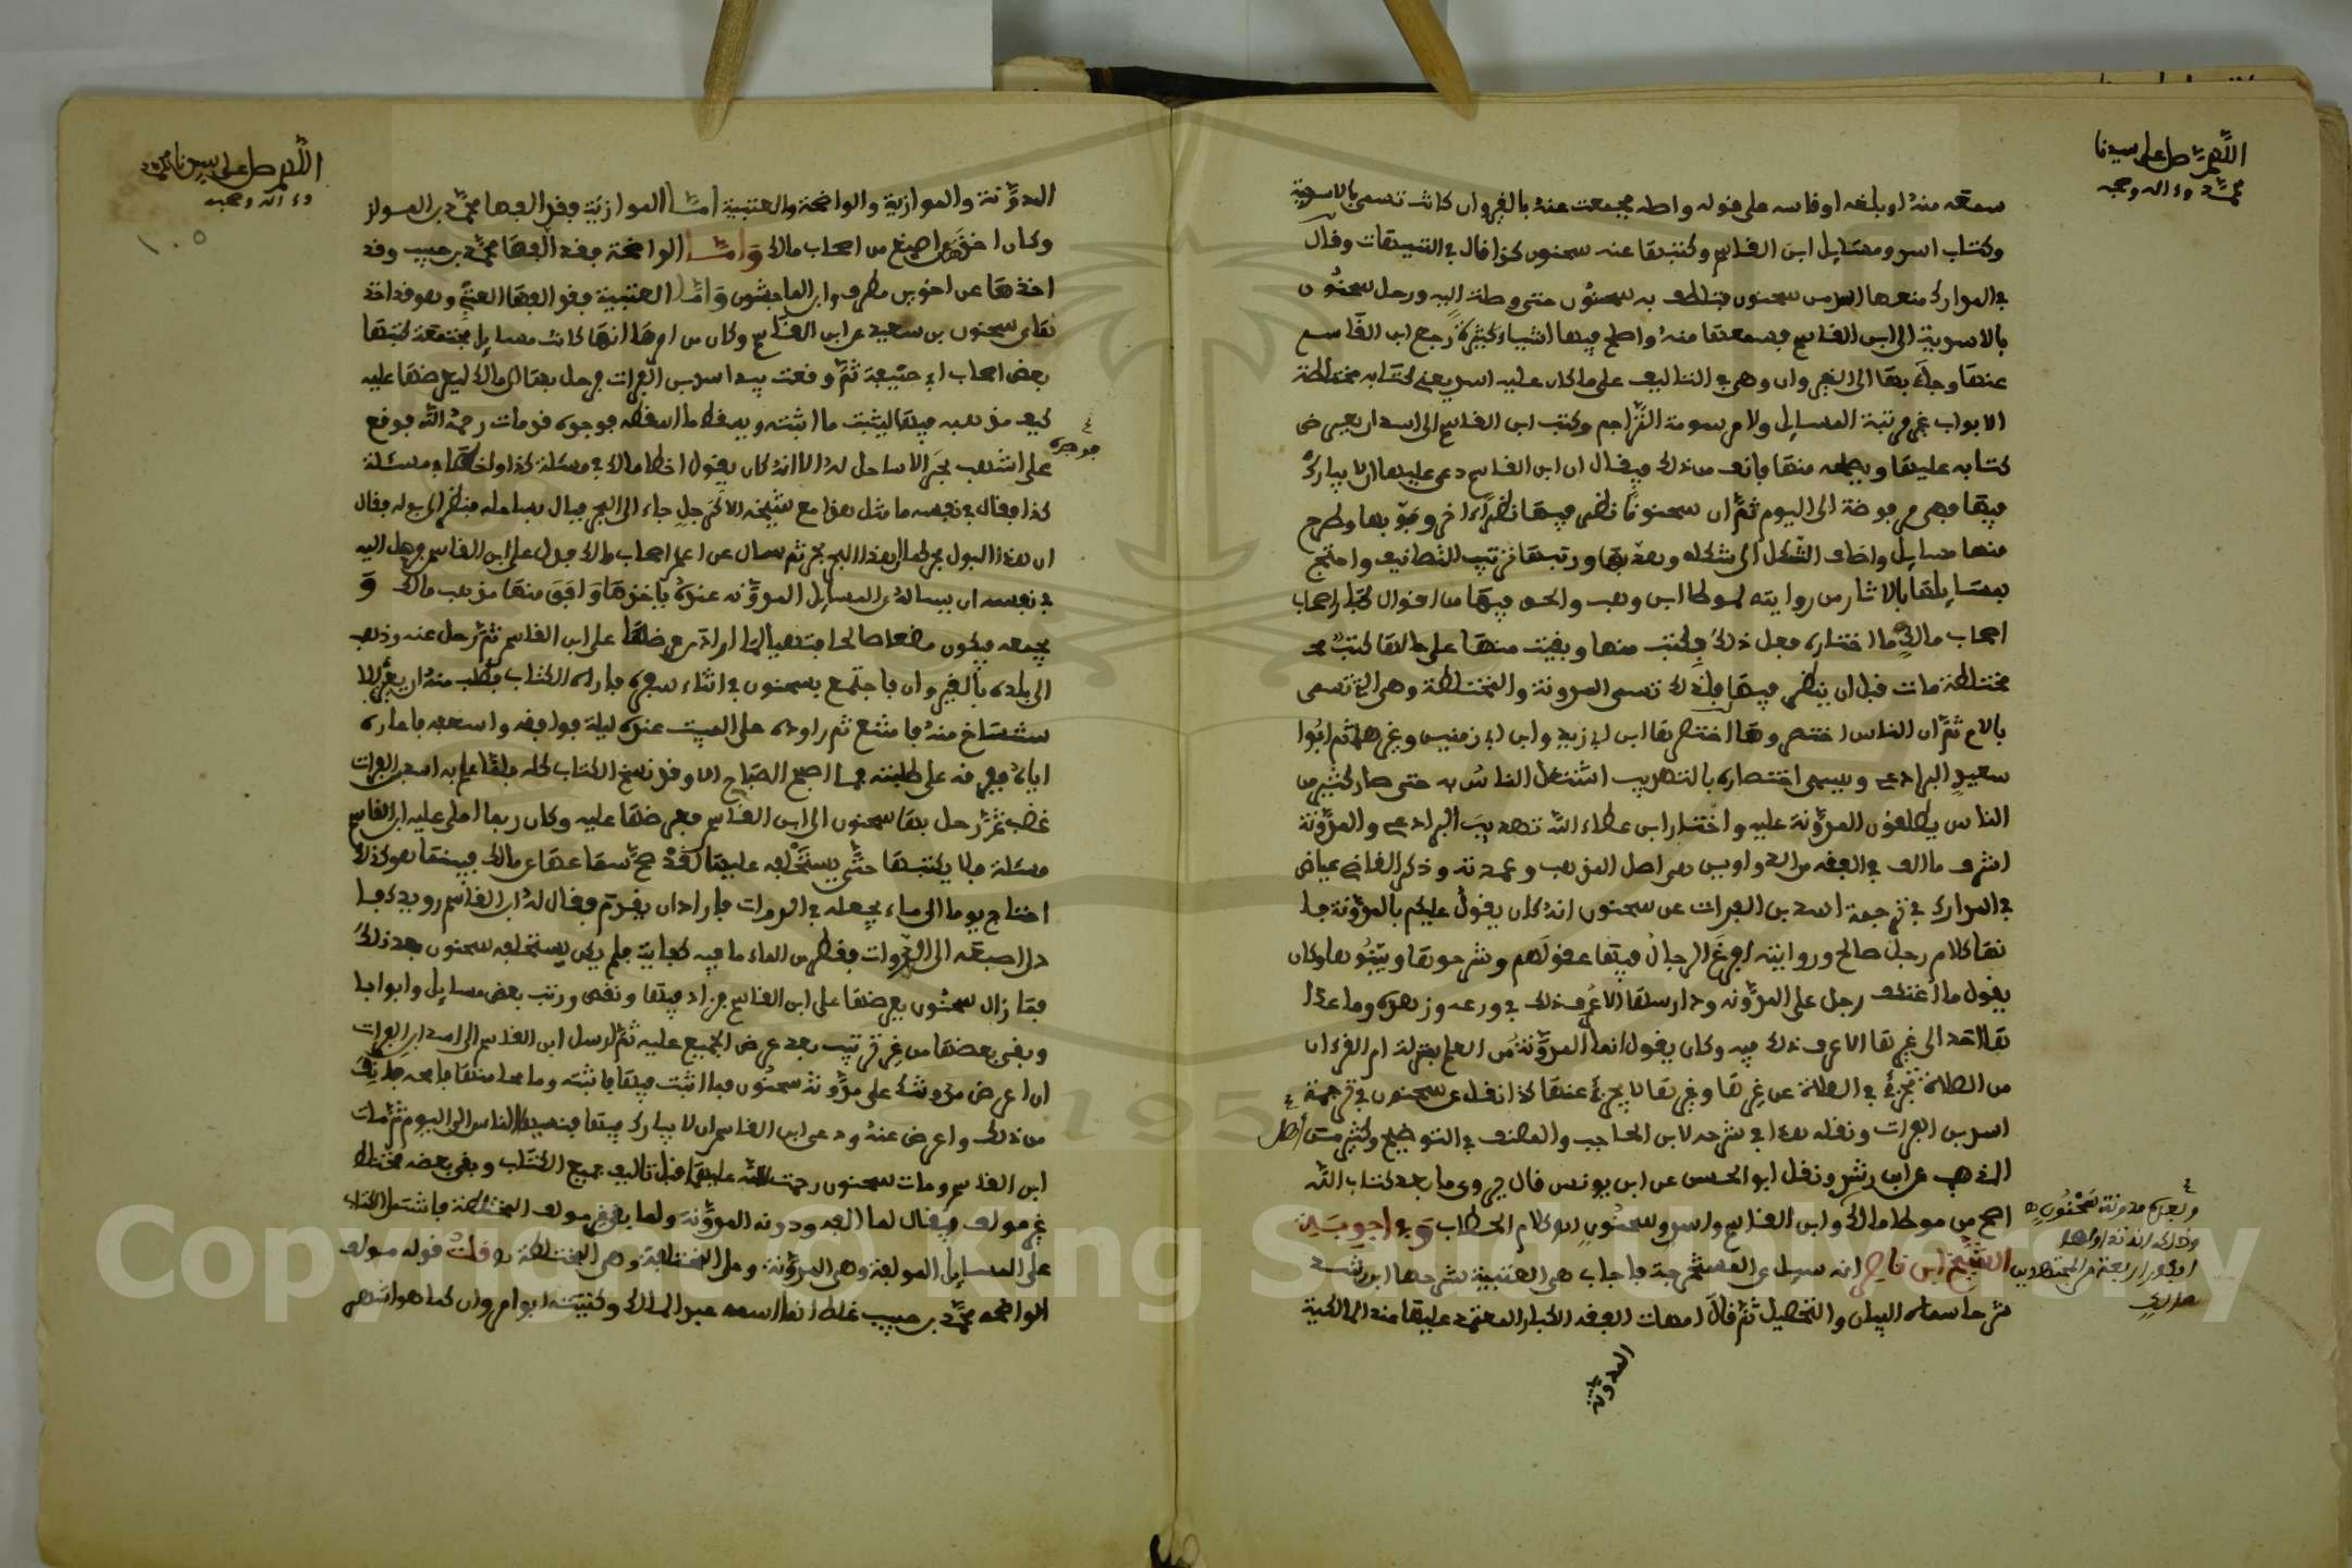 اللهم صل على سيدنا
محمد وءاله وصحبه
سمعه منه او بلغه او قاسه على قوله واصله فجمعت عنه بالقيروان كانت تسمى بالاسدية
وكتاب اسد ومسايل ابن القاسم وكتبها عنه سحنون كذا قال في التنبيهات وقال
في المدارك منعها اسد من سحنون فتلطف به سحنون حتى وصلت اليه ورحل سحنون
بالاسدية الى ابن القاسم فسمعها منه واصلح فيها اشياء كثيرة رجع ابن القاسم
عنها وجاء بها الى القيروان وهي في التاليف على ما كان عليه اسد يعني كتابه مختلطة
الابواب غير مرتبة المسايل ولا مرسومة التراجم وكتب ابن القاسم الى اسد ان يعرض
كتابه عليها ويصلحه منها فانف من ذلك فيقال ان ابن القاسم دعى عليها الا يبارك
فيها فهي مرفوضة الى اليوم ثم ان سحنونا نظر فيها نظرا ءاخر وبوبها وطرح
منها مسايل واضاف الشكل الى شكله وهذبها ورتبها ترتيب التصانيف واحتج
لمسايلها بالاثار من روايته لموطا ابن وهب والحق فيها من اقوال كبار اصحاب
اصحاب مالك ما اختاره فعل ذلك بكتب منها وبقيت منها على حالها كتب
مختلطة مات قبل ان ينظر فيها فلذلك تسمى المدونة والمختلطة وهي التي تسمى
بالام ثم ان الناس اختصروها اختصرها ابن ابي زيد وابن ابي زمنين وغيرهما ثم ابو
سعيد البرادعي ويسمى اختصاره بالتهذيب اشتغل الناس به حتى صار كثير من
الناس يطلقون المدونة عليه واختار ابن عطاء الله تهذيب البرادعي والمدونة
اشرف ما الف في الفقه من الدواوين وهي اصل المذهب وعمدته وذكر القاضي عياض
في المدارك في ترجمة اسد بن الفرات عن سحنون انه كان يقول عليكم بالمدونة فا
نها كلام رجل صالح وروايته افرغ الرجال فيها عقولهم وشرحوها وبينوها وكان
يقول ما اعتكف رجل على المدونة ودارسها الا عرف ذلك في ورعه وزهده وما عدا
ها احد الى غيرها الا عرف ذلك فيه وكان يقول انما المدونة من العلم بمنزلة ام القرءان
من الصلاة تجزئ في الصلاة عن غيرها وغيرها لا يجزئ عنها كذا نقل عن سحنون في ترجمة
اسد بن الفرات ونقله هذا في شرحه لابن الحاجب والمصنف في التوضيح وكثير من اهل
المذهب عن ابن رشد ونقل ابو الحسن عن ابن يونس قال يروى ما بعد كتاب الله
اصح من موطا مالك وابن القاسم واسد وسحنون اه كلام الحطاب وفي اجوبة
الشيخ ابن ناصر انه سيل عن المستخرجة فاجاب هي العتبية شرحها ابن رشد
شرحا سماه البيان والتحصيل ثم قال امهات الفقه الكبار المعتمد عليها عند المالكية
المدونة
وبعده مدونة سحنون
صار اليه
اللهم صل على سيدنا محمد
وءاله وصحبه
١٠٥
المدونة والموازية والواضحة والعتبية اما الموازية فقد الفها محمد بن المواز
وكان اخذ عن اصبغ من اصحاب مالك واما الواضحة فقد الفها محمد بن حبيب وقد
اخذها عن اخوين مطرف وابن الماجشون واما العتبية فقد الفها العتبي وهو قد اخذ
ها عن سحنون بن سعيد عن ابن القاسم وكان من امرها انها كانت مسايل مجتمعة كتبها
بعض اصحاب ابي حنيفة ثم وقعت بيد اسد بن الفرات فرحل بها الى مالك ليعرضها عليه
كيف مذهبه فيها ليثبت ما اثبته ويسقط ما اسقطه فوجده قد مات رحمه الله فوقع
فوجده
على اشهب بحر لا ساحل له الا انه كان يقول اخطا مالك في مسئلة كذا واخطا في مسئلة
كذا فقال في نفسه ما مثل هذا مع شيخه الا كرجل جاء الى البحر فبال بساحله فنظر الى بوله فقال
ان هذا البول بحر الى هذا البحر بحر ثم سال عن اعلم اصحاب مالك فدل على ابن القاسم فرحل اليه
في نفسه ان يساله عن المسايل المدونة عنده ياخذها وافق منها مذهب مالك و
يجمعه فيكون مفعلا صالحا فتهيا لما اراد من عرضها على ابن القاسم ثم رحل عنه وذهب
الى بلده بالقيروان فاجتمع بسحنون في اثناء سفره فاراه الكتاب فطلب منه ان يعيره للا
ستنساخ منه فامتنع ثم راوده على المبيت عنده ليلة فوافقه واسعفه فاعاره
اياه ففرقه على طلبته فما اصبح الصباح الا وقد نسخ الكتاب كله فلما علم به اسد بن الفرات
غضب ثم رحل بها سحنون الى ابن القاسم فعرضها عليه وكان ربما املى عليه ابن القاسم
مسئلة فلا يكتبها حتى يستحلفه عليها لقد صح سماعها عن مالك فبينما هو كذلك
احتاج يوما الى ماء يجعله في الدوات فاراد ان يقوم فقال له ابن القاسم رويدك فا
دلى اصبعه الى الدوات فقطر من الماء ما فيه كفاية فلم يكن يستحلفه سحنون بعد ذلك
فما زال سحنون يعرضها على ابن القاسم فزاد فيها ونقص ورتب بعض مسايل وابوابا
وبقي بعضها من غير ترتيب بعد عرض الجميع عليه ثم ارسل ابن القاسم الى اسد ابن الفرات
ان اعرض مدونتك على مدونة سحنون فما اثبت فيها فاثبته وما محا منها فامحه فانف
من ذلك واعرض عنه ودعى ابن القاسم ان لا يبارك فيها فنسيها الناس الى اليوم ثم مات
ابن القاسم ومات سحنون رحمت الله عليهما قبل تاليف جميع الكتاب وبقي بعضه مختلطا
غير مولف فيقال لما الفه ودونه المدونة ولما بقي غير مولف المختلطة فاشتمل الكتاب
على المسايل المولفة وهي المدونة وعلى المختلطة وهي المختلطة اه قلت قوله مولف
الواضحة محمد بن حبيب غلط انما اسمه عبد المالك وكنيته ابو مروان كما هو اشهر